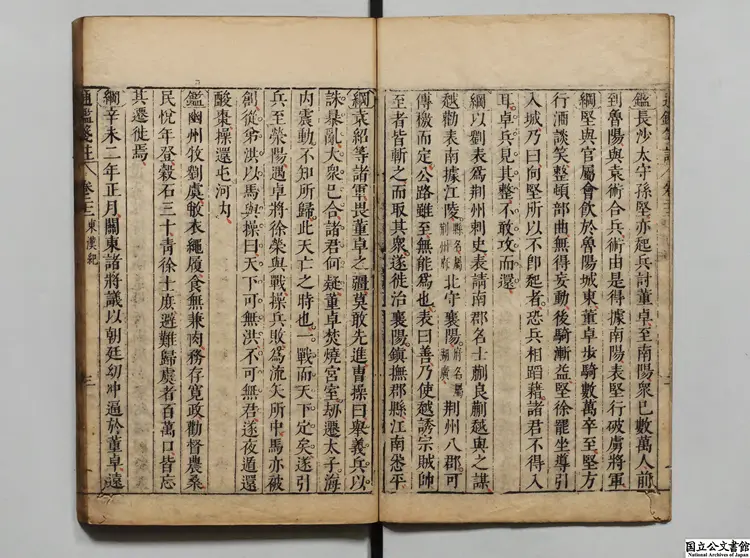 鑑長沙太守孫堅亦起兵討董卓至南陽衆已數萬人前
到魯陽與袁術合兵術由是得據南陽表堅行破虜將軍
綱堅與官屬會飲於魯陽城東董卓步騎數萬卒至堅方
行酒談笑整頓部曲無得妄動後騎漸益堅徐罷坐導引
入城乃曰向堅所以不卽起者恐兵相蹈藉諸君不得入
耳卓兵見其整不敢攻而還
綱以劉表爲荆州刺史表請南郡名士蒯良蒯越與之謀
越勸表南據江陵縣名屬荆州府北守襄陽府名屬湖廣荆州八郡可
傳檄而定公路雖至無能爲也表曰善乃使越誘宗賊帥
至者皆斬之而取其衆遂徙治襄陽鎭撫郡縣江南悉平
綱袁紹等諸軍畏董卓之彊莫敢先進曹操曰舉義兵以
誅暴亂大衆已合諸君何疑董卓焚燒宮室劫遷太子海
内震動不知所歸此天亡之時也一戰而天下定矣遂引
兵至滎陽遇卓將徐榮與戰操兵敗爲流矢所中馬亦被
創從弟洪以馬與操曰天下可無洪不可無君遂夜遁還
酸棗操還屯河内
鑑幽州牧劉虞敝衣繩履食無兼肉務存寬政勸督農桑
民悅年登穀石三十青徐士庶避難歸虞者百萬口皆忘
其遷徙焉
綱辛未二年正月關東諸將議以朝廷幼冲逼於董卓遠
通鑑箋註 卷二十三 東漢紀 三
国立公文書館
National Archives of Japan